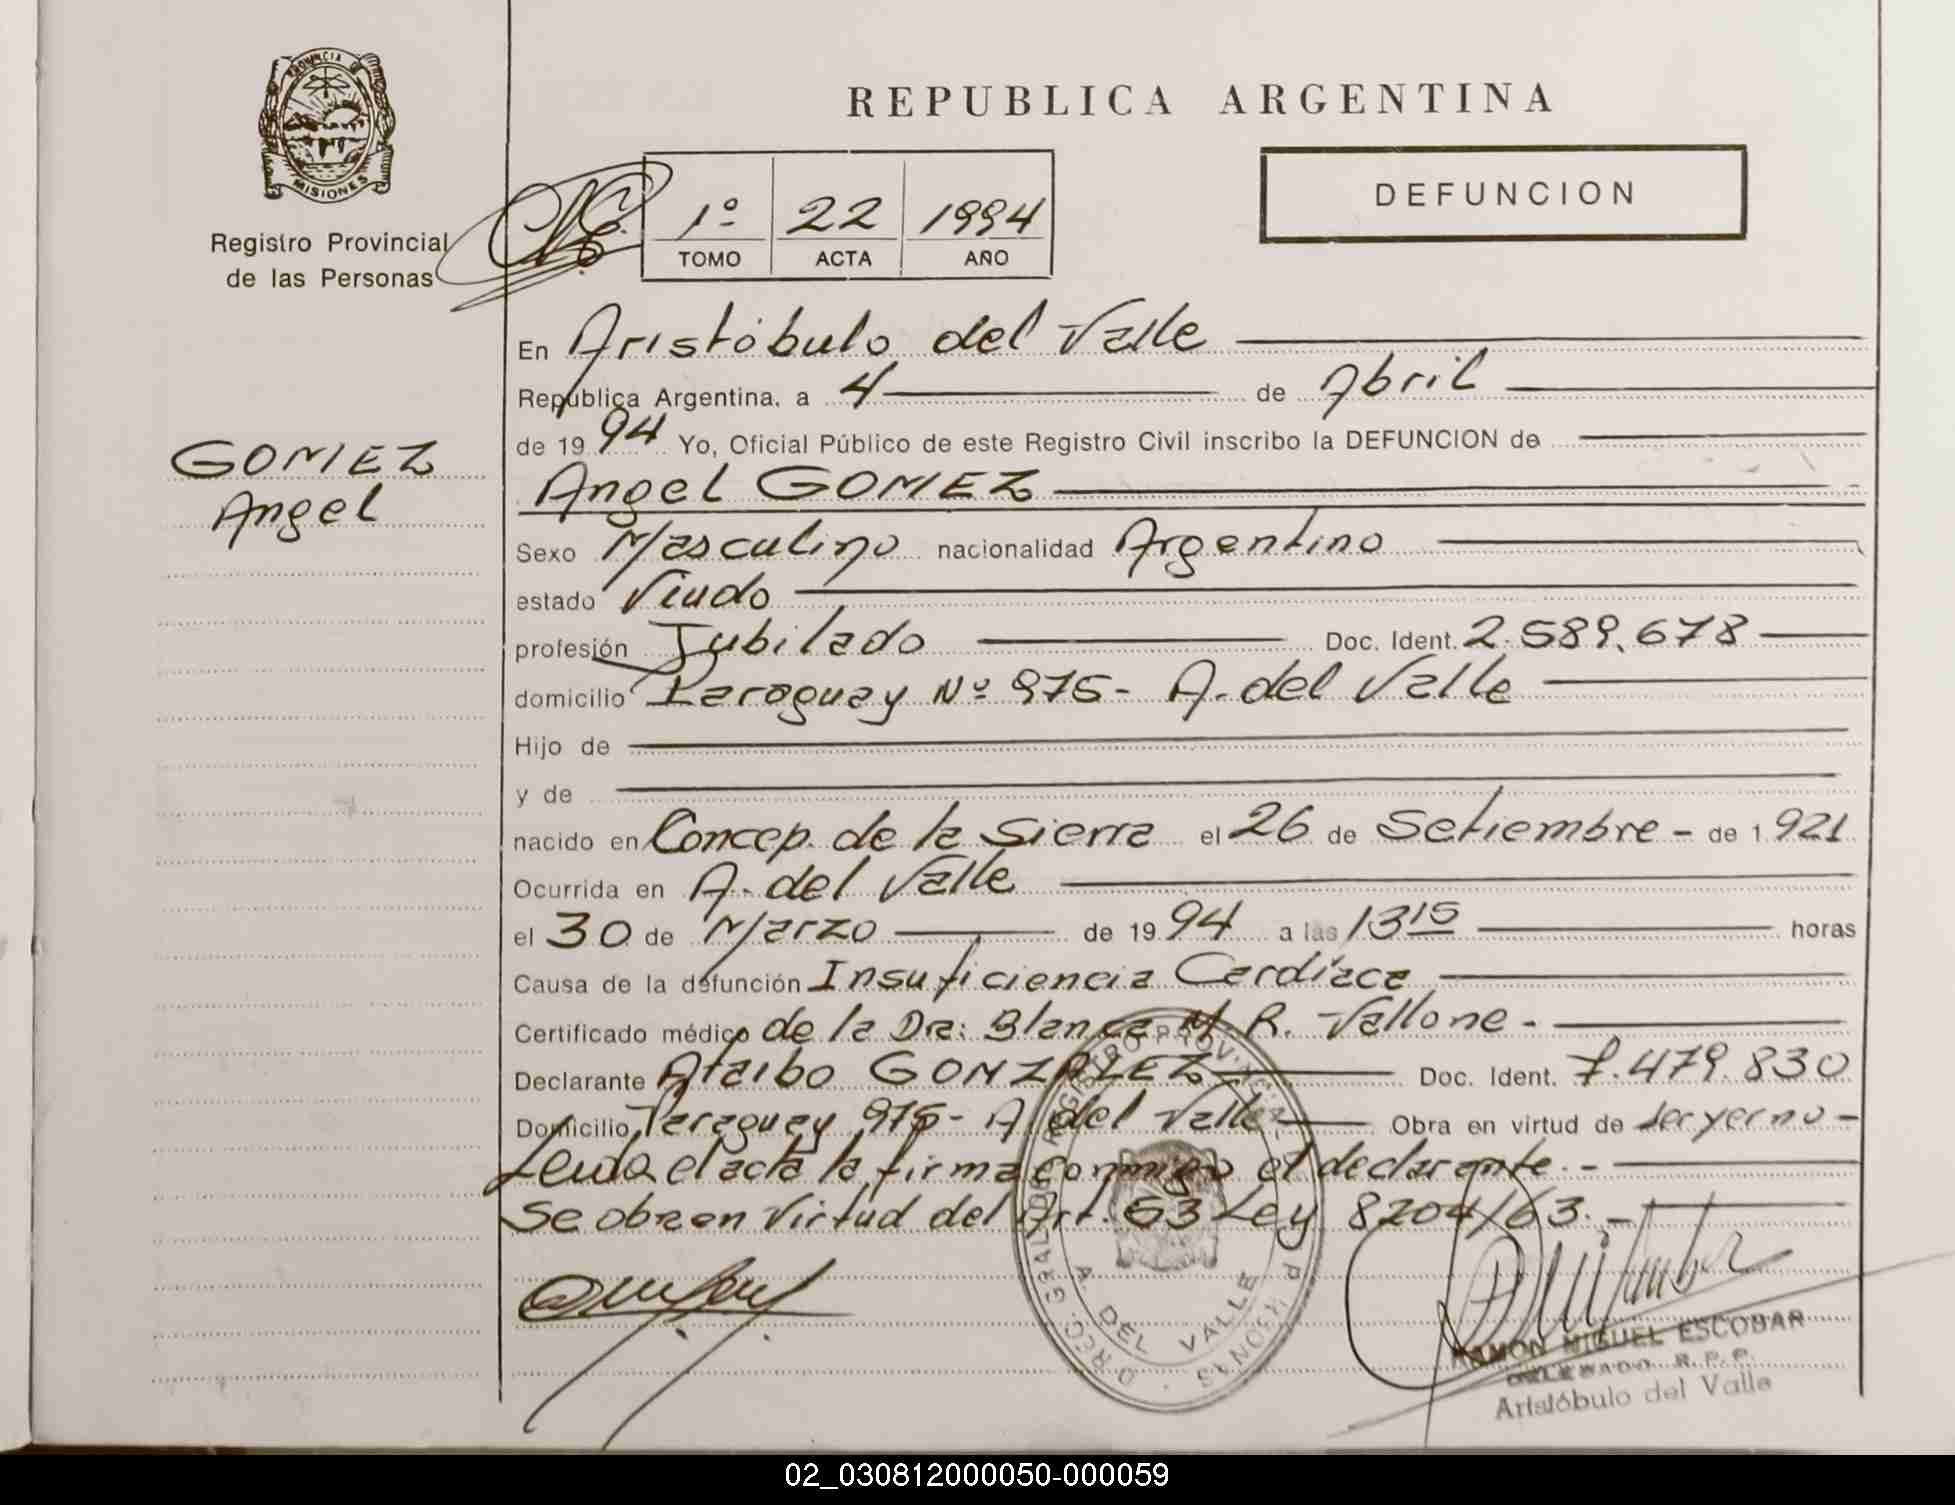 PROVINCIA DE
MISIONES
Registro Provincial
de las Personas
REPUBLICA ARGENTINA
DEFUNCION
1º 22 1994
TOMO ACTA AÑO
GOMEZ
Angel
En Aristóbulo del Valle
República Argentina, a 4 de Abril
de 1994 Yo, Oficial Público de este Registro Civil inscribo la DEFUNCION de
Angel GOMEZ
Sexo Masculino nacionalidad Argentino
estado Viudo
profesión Jubilado Doc. Ident. 2.589.678
domicilio Paraguay Nº 975- A. del Valle
Hijo de
y de
nacido en Concep. de la Sierra el 26 de Setiembre - de 1921
Ocurrida en A. del Valle
el 30 de Marzo de 1994 a las 13 15 horas
Causa de la defunción Insuficiencia Cardíaca
Certificado médico de la Dra: Blanca M. R. Vallone.-
Declarante Ataibo GONZALEZ Doc. Ident. 7.479.830
Domicilio Paraguay 975- A. del Valle Obra en virtud de ser yerno-
Leida el acta la firma conmigo el declarante.-
Se obra en Virtud del Art. 63 Ley 8204/63.-
A. DEL VALLE
MISIONES
RAMON MIGUEL ESCOBAR
DELEGADO R. P. P.
Aristóbulo del Valle
02_030812000050-000059